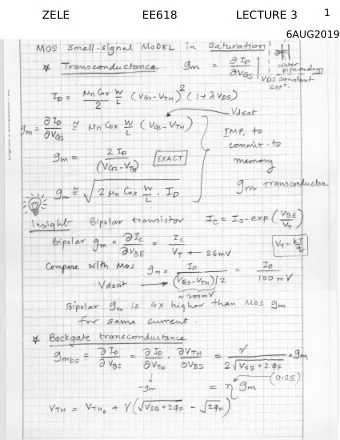 ZELE EE618 LECTURE 3 1
6AUG2019
MOS small-signal MODEL in Saturation
* Transconductance gm = ∂ID/∂VGS
VDS constant
ID = μn Cox/2 W/L (VGS-VTH)² (1+λVDS)
Vdsat
gm = ∂ID/∂VGS ≅ μn Cox W/L (VGS-VTH)
gm = 2ID/(VGS-VTH) EXACT
IMP. to
commit to
memory
gm transconductor
gm ≅ √(2μn Cox W/L . ID)
Insight Bipolar transistor IC = IO.exp(VBE/VT)
Bipolar gm = ∂IC/∂VBE = IC/VT ← 26mV
VT = kT/q
Compare with MOS gm = ID/((VGS-VTH)/2) = ID/100mV
Vdsat
≈ 200mV
Bipolar gm is 4x higher than MOS gm
for same current.
* Backgate transconductance
gmbs = ∂ID/∂VBS = ∂ID/∂VTH . ∂VTH/∂VBS = γ/(2√(VSB+2φF)) . gm
-gm = η gm (0.25)
VTH = VTH0 + γ(√(VSB+2φF) - √(2φF))